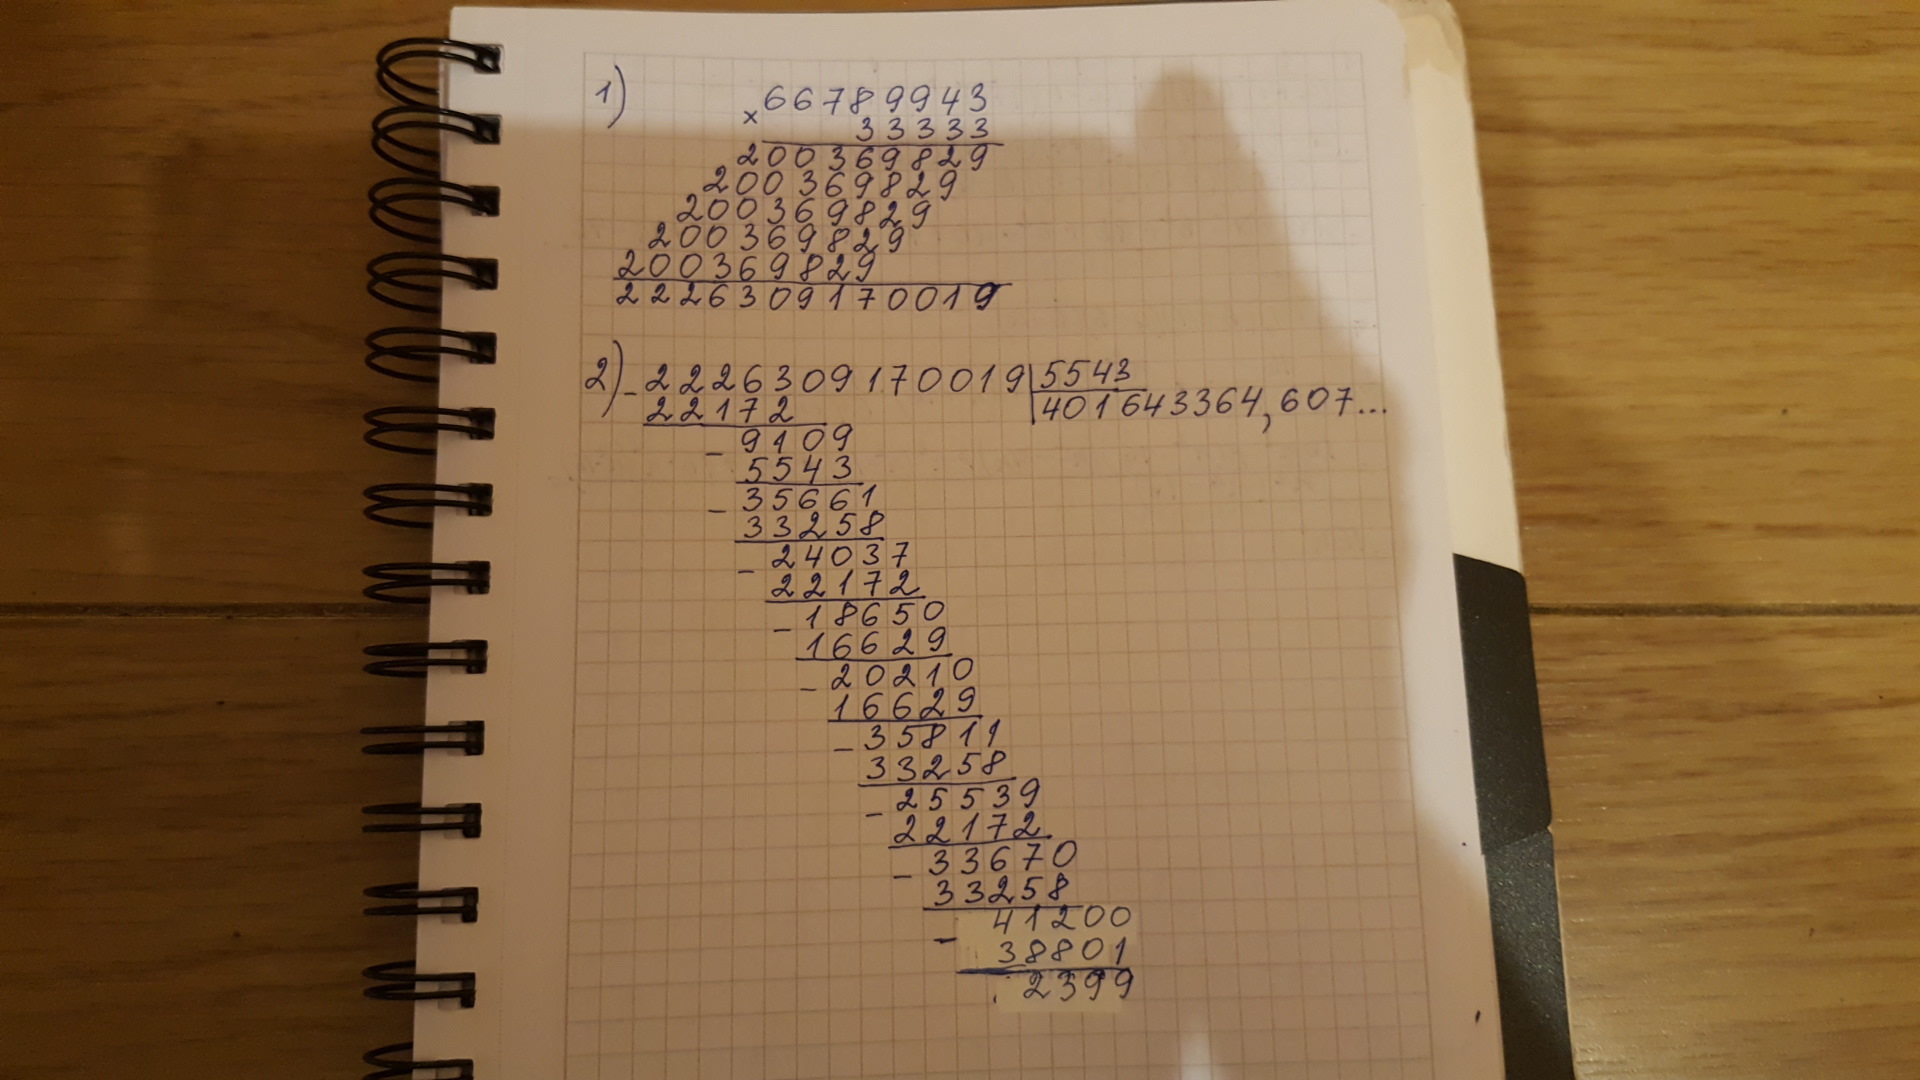 1)
66789943
× 33333
200369829
200369829
200369829
200369829
200369829
2226309170019
2) - 2226309170019 | 5543
22172 | 401643364,607...
- 9109
5543
- 35661
33258
- 24037
22172
- 18650
16629
- 20210
16629
- 35811
33258
- 25539
22172
- 33670
33258
- 41200
38801
2399